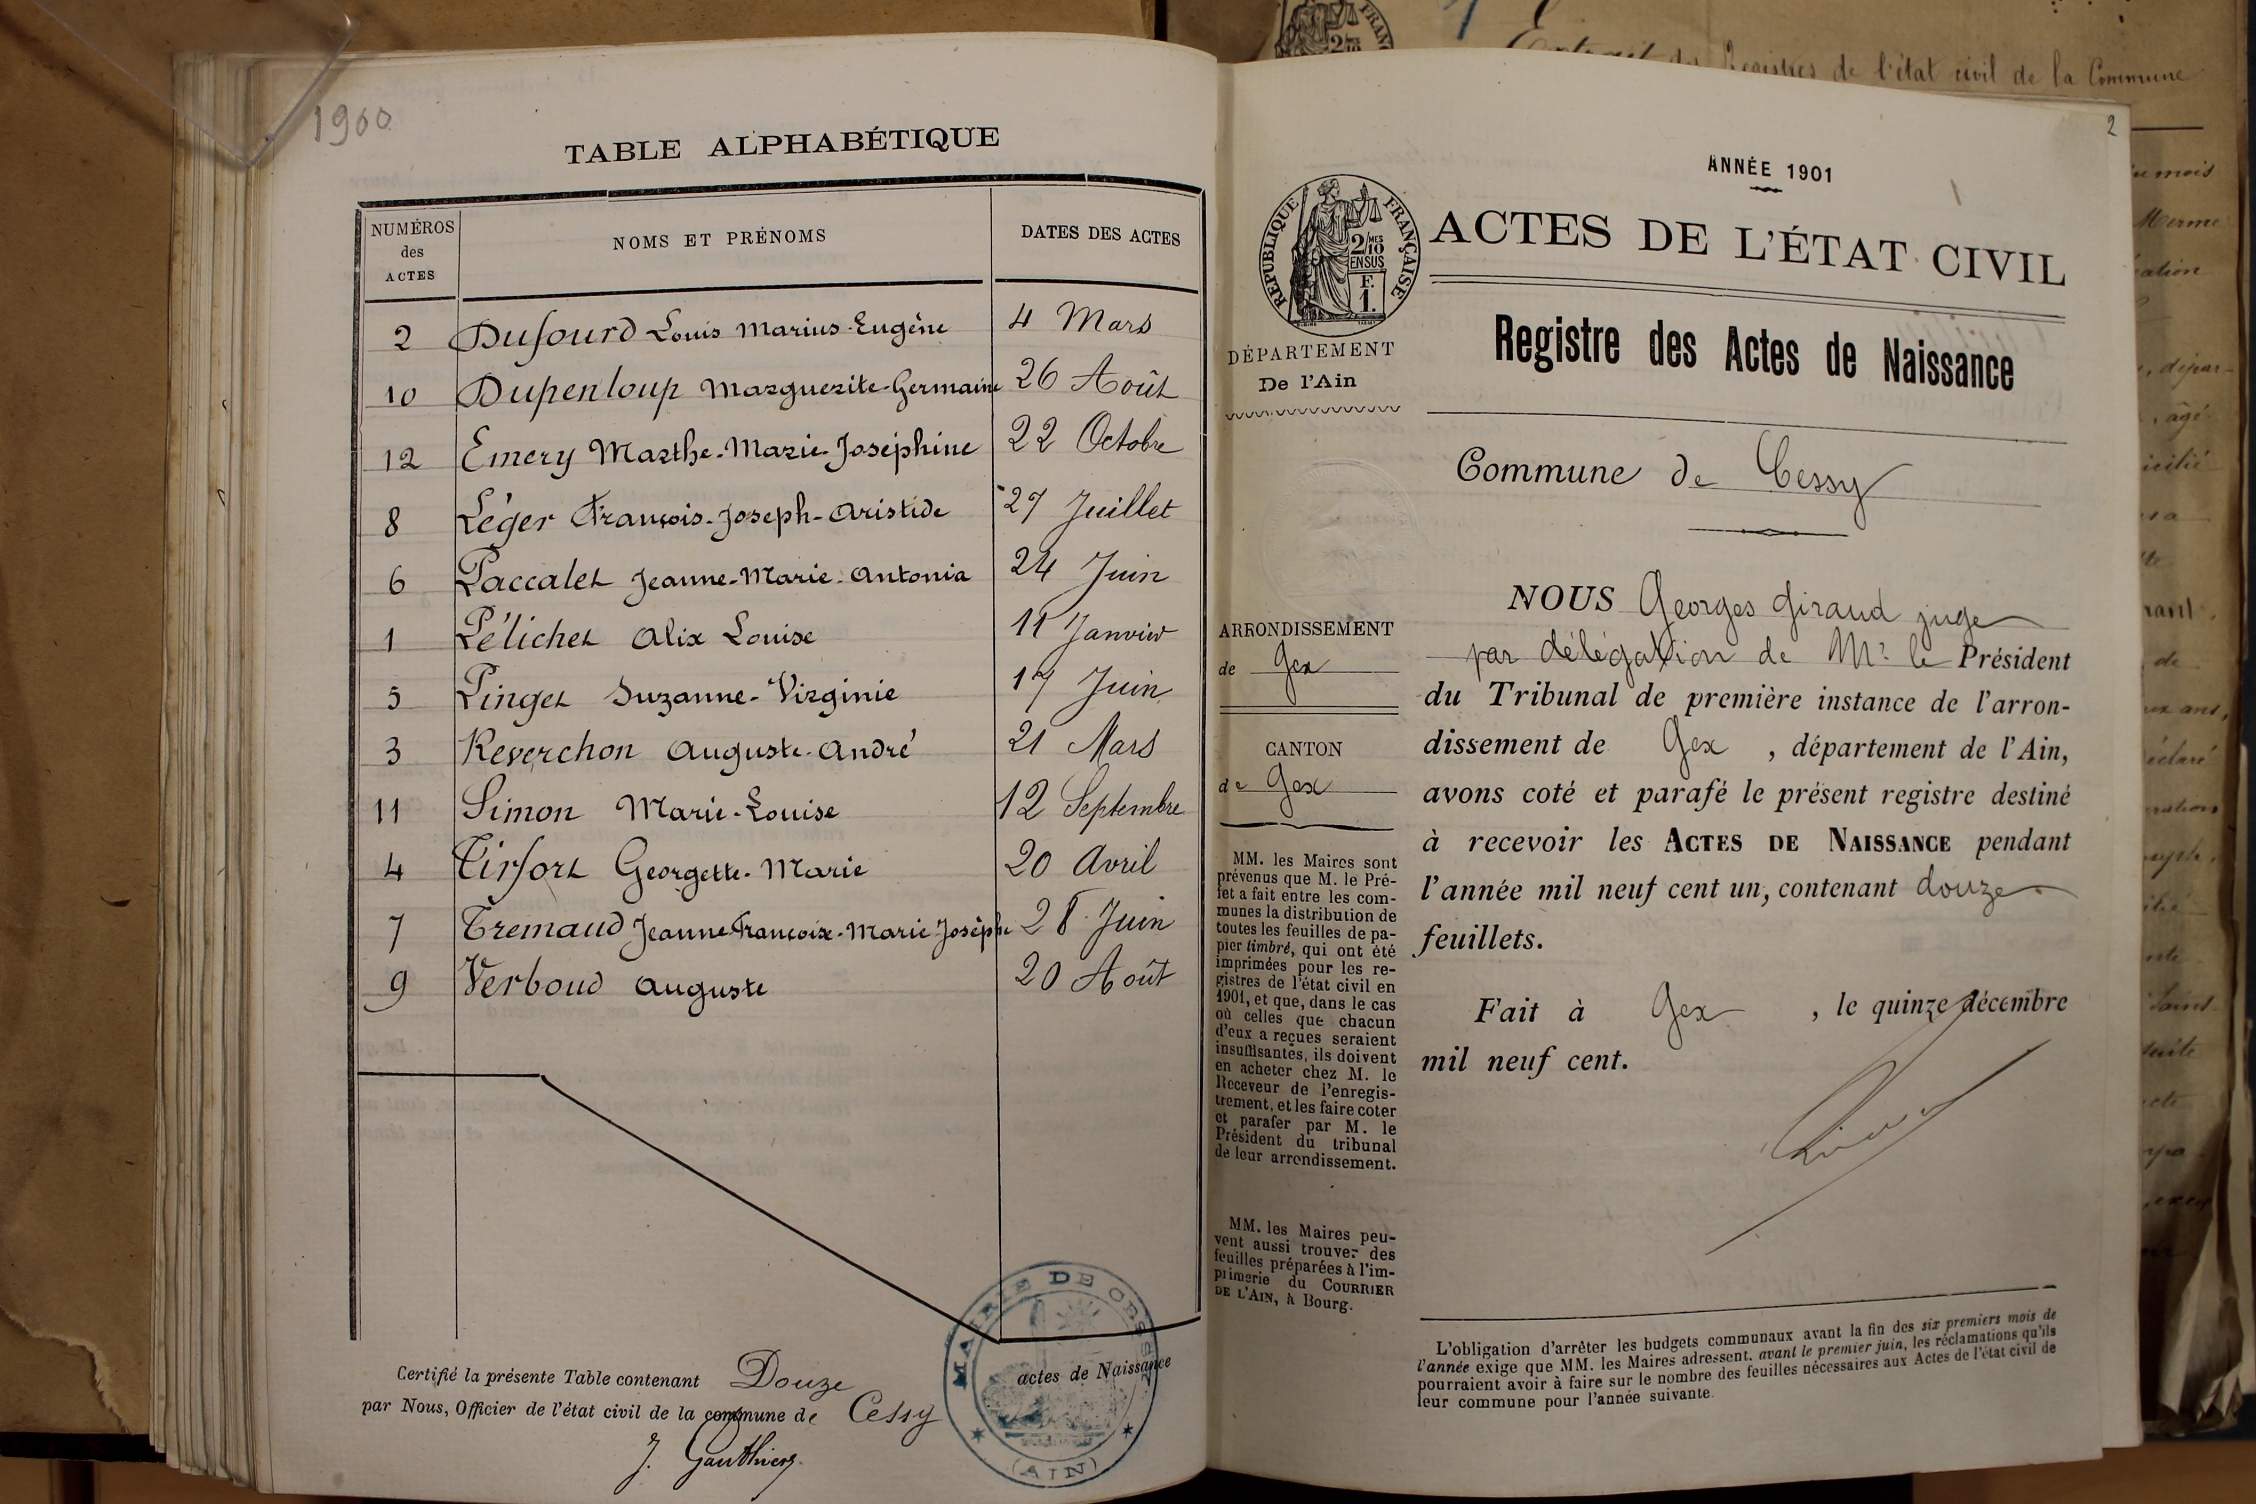 1900
TABLE ALPHABÉTIQUE
NUMÉROS
des
ACTES
NOMS ET PRÉNOMS
DATES DES ACTES
2 Dufourd Louis Marius-Eugène 4 Mars
10 Dupenloup Marguerite-Germaine 26 Août
12 Emery Marthe-Marie-Joséphine 22 Octobre
8 Léger François-Joseph-Aristide 27 Juillet
6 Paccalet Jeanne-Marie-Antonia 24 Juin
1 Pélichet Alix Louise 11 Janvier
5 Pinget Suzanne-Virginie 17 Juin
3 Reverchon Auguste-André 21 Mars
11 Simon Marie-Louise 12 Septembre
4 Tirfort Georgette-Marie 20 Avril
7 Tremaud Jeanne Françoise-Marie Josèphe 28 Juin
9 Verboud Auguste 20 Août
Certifié la présente Table contenant Douze actes de Naissance
par Nous, Officier de l'état civil de la commune de Cessy
J. Gauthier
MAIRIE DE CESSY
(AIN)
2
ANNÉE 1901
RÉPUBLIQUE FRANÇAISE
2/10
MES
EN SUS
F.
1.
ACTES DE L'ÉTAT CIVIL
DÉPARTEMENT
De l'Ain
Registre des Actes de Naissance
Commune de Cessy
ARRONDISSEMENT
de Gex
CANTON
de Gex
MM. les Maires sont
prévenus que M. le Pré-
fet a fait entre les com-
munes la distribution de
toutes les feuilles de pa-
pier timbré, qui ont été
imprimées pour les re-
gistres de l'état civil en
1901, et que, dans le cas
où celles que chacun
d'eux a reçues seraient
insuffisantes, ils doivent
en acheter chez M. le
Receveur de l'enregis-
trement, et les faire coter
et parafer par M. le
Président du tribunal
de leur arrondissement.
MM. les Maires peu-
vent aussi trouver des
feuilles préparées à l'im-
primerie du COURRIER
DE L'AIN, à Bourg.
NOUS Georges Giraud juge
par délégation de Mr le Président
du Tribunal de première instance de l'arron-
dissement de Gex, département de l'Ain,
avons coté et parafé le présent registre destiné
à recevoir les ACTES DE NAISSANCE pendant
l'année mil neuf cent un, contenant douze
feuillets.
Fait à Gex, le quinze décembre
mil neuf cent.
L'obligation d'arrêter les budgets communaux avant la fin des six premiers mois de
l'année exige que MM. les Maires adressent, avant le premier juin, les réclamations qu'ils
pourraient avoir à faire sur le nombre des feuilles nécessaires aux Actes de l'état civil de
leur commune pour l'année suivante.
Extrait des Registres de l'état civil de la Commune